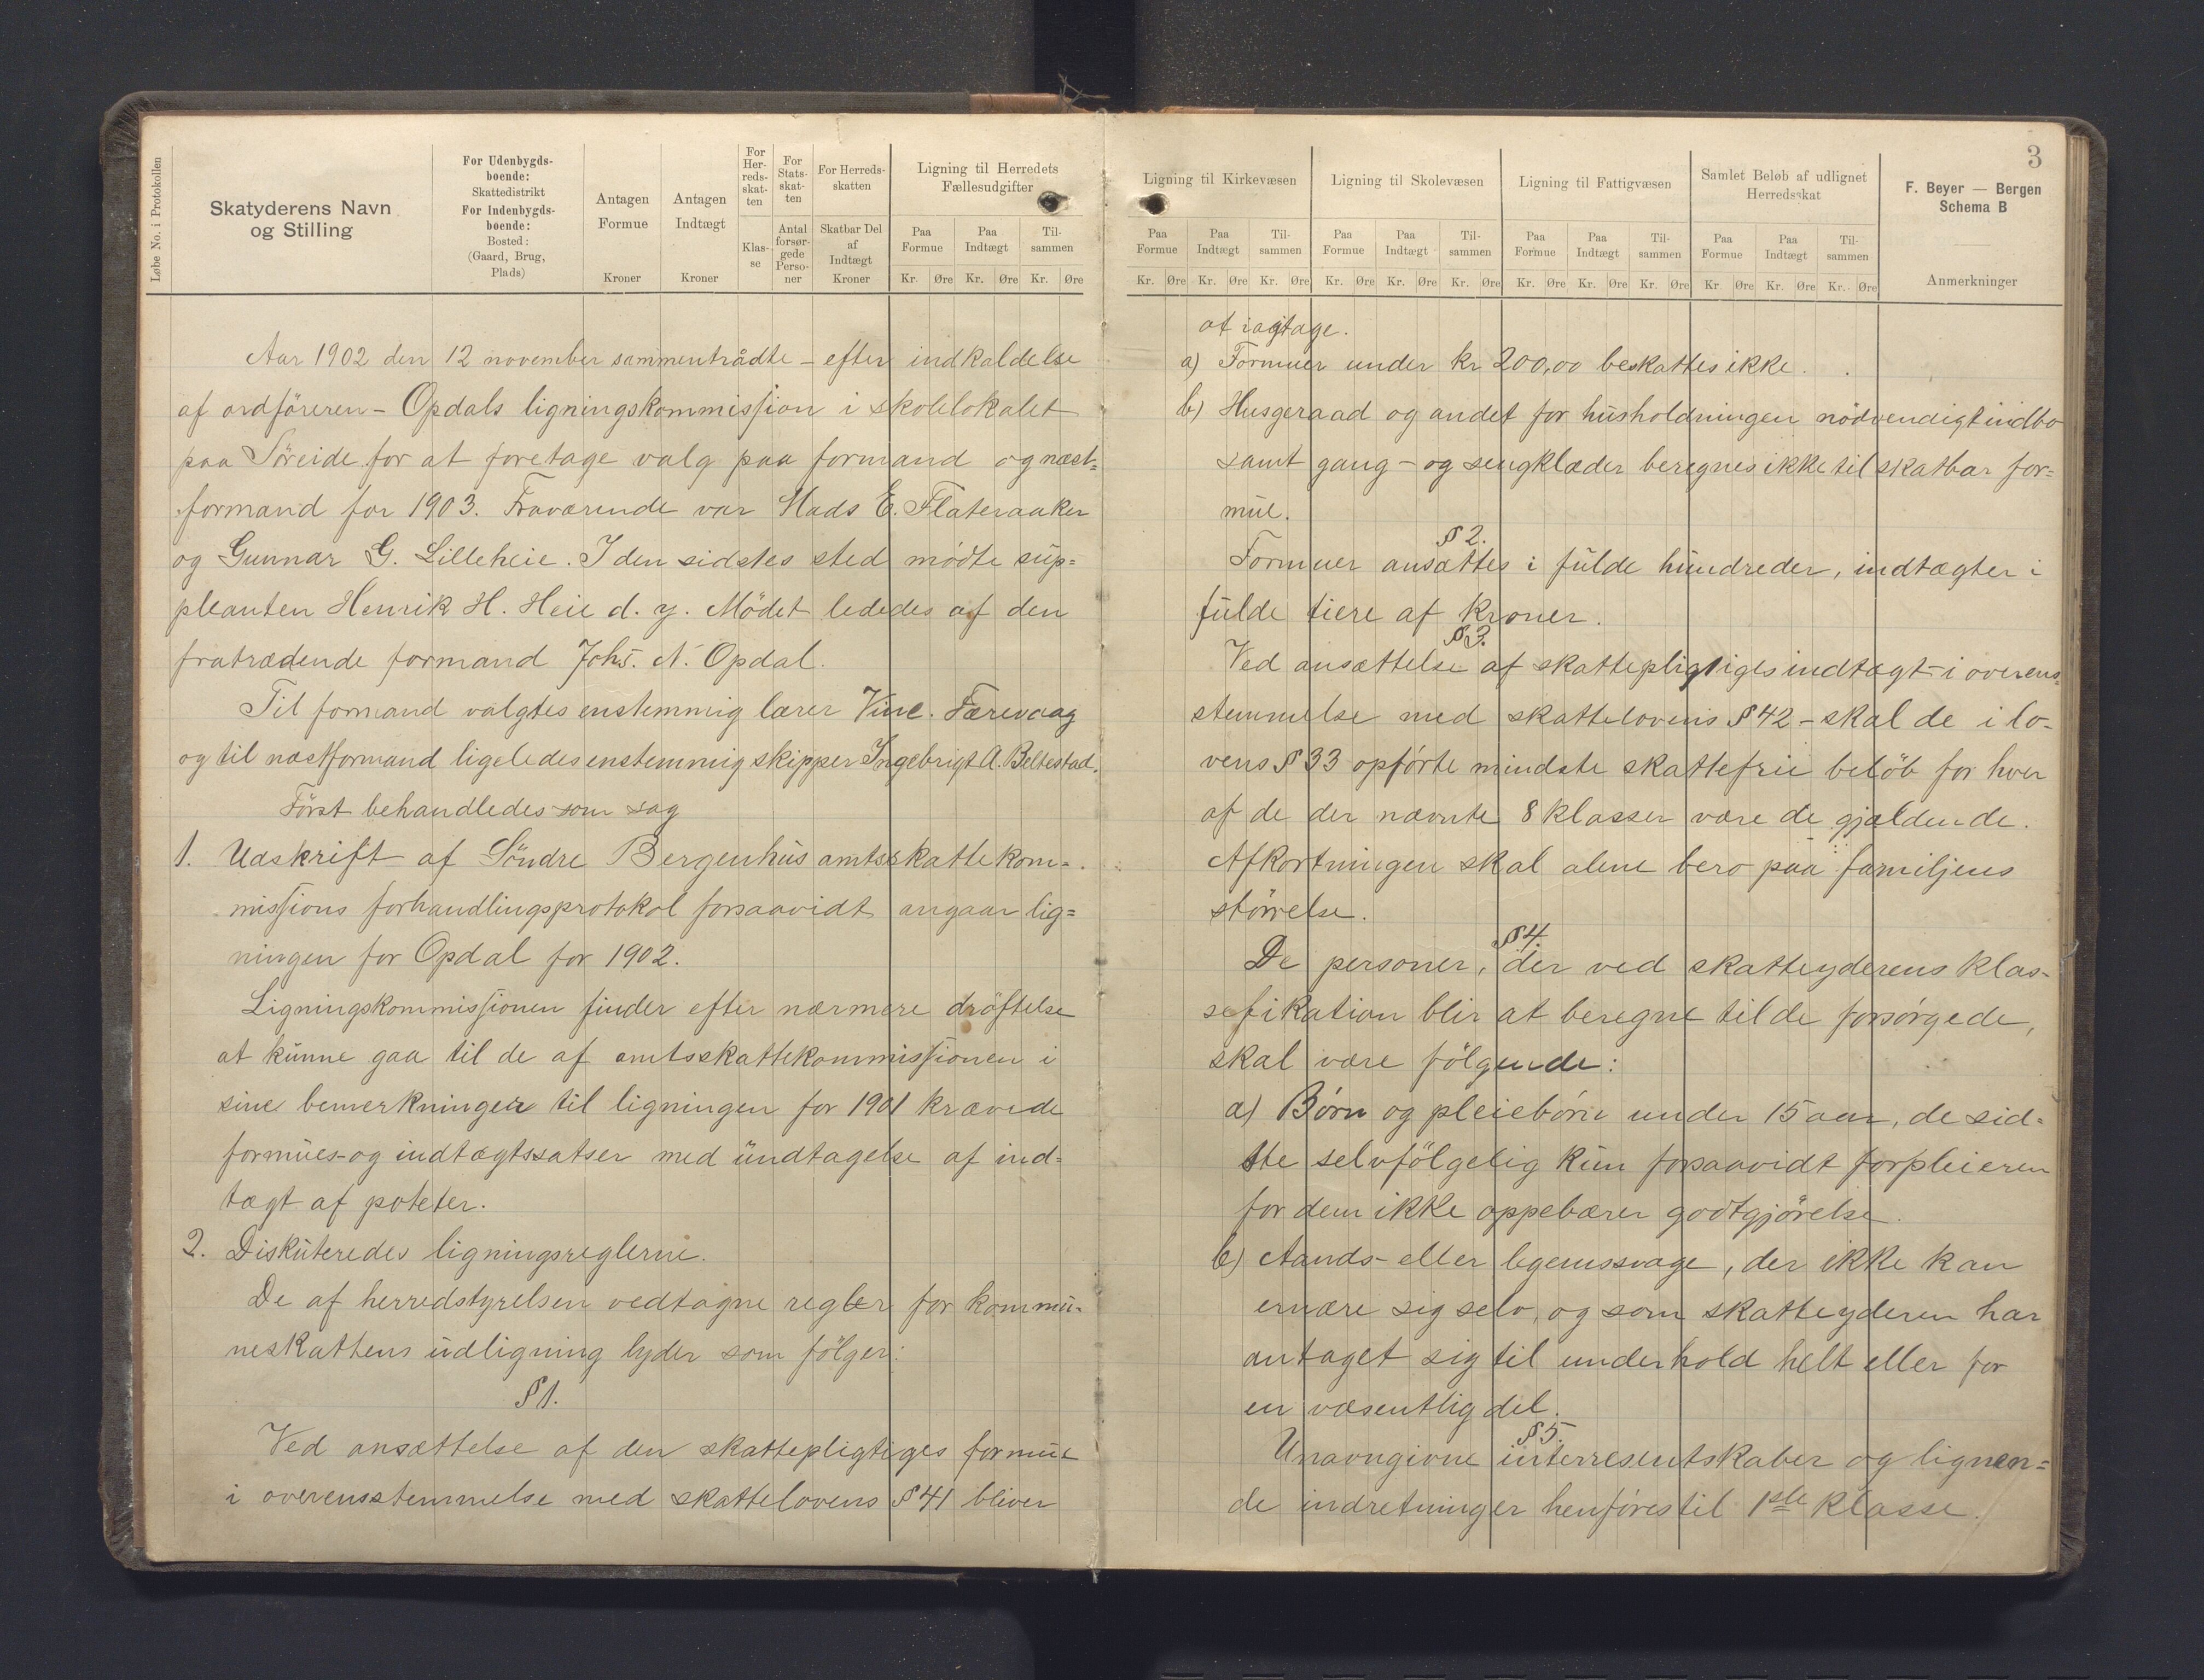 Løbe No. i Protokollen
Skatyderens Navn
og Stilling
For Udenbygds-
boende:
Skattedistrikt
For Indenbygds-
boende:
Bosted:
(Gaard, Brug,
Plads)
Antagen
Formue
Kroner
Antagen
Indtægt
Kroner
For
Her-
reds-
skat-
ten
Klas-
se
For
Stats-
skat-
ten
Antal
forsør-
gede
Perso-
ner
For Herreds-
skatten
Skatbar Del
af
Indtægt
Kroner
Ligning til Herredets
Fællesudgifter
Paa
Formue
Paa
Indtægt
Til-
sammen
Kr. Øre Kr. Øre Kr. Øre
Aar 1902 den 12 november sammentrådte - efter indkaldelse
af ordföreren - Opdals ligningskommission i skolelokalet
paa Söreide for at foretage valg paa formand og næst=
formand for 1903. Fraværende var Mads E. Flateraaker
og Gunnar G. Lilleheie. I den sidstes sted mödte sup=
pleanten Henrik H. Heie d. y. Mödet lededes af den
fratrædende formand Johs. N. Opdal.
Til formand valgtes enstemmig lærer Vinc. Færevaag
og til næstformand ligeledes enstemmig skipper Ingebrigt A. Beltestad.
Först behandledes som sag
1. Udskrift af Söndre Bergenhus amtsskattekom=
missions forhandlingsprotokol forsaavidt angaar lig=
ningen for Opdal for 1902.
Ligningskommissionen finder efter nærmere dröftelse
at kunne gaa til de af amtsskattekommissionen i
sine bemerkninger til ligningen for 1901 krævede
formues- og indtægtssatser med undtagelse af ind=
tægt af poteter.
2. Diskuteredes ligningsreglerne.
De af herredstyrelsen vedtagne regler for kommu-
neskattens udligning lyder som fölger:
§ 1.
Ved ansættelse af den skattepligtiges formue
i overensstemmelse med skattelovens § 41 bliver
3
Ligning til Kirkevæsen
Paa
Formue
Paa
Indtægt
Til-
sammen
Kr. Øre Kr. Øre Kr. Øre
Ligning til Skolevæsen
Paa
Formue
Paa
Indtægt
Til-
sammen
Kr. Øre Kr. Øre Kr. Øre
Ligning til Fattigvæsen
Paa
Formue
Paa
Indtægt
Til-
sammen
Kr. Øre Kr. Øre Kr. Øre
Samlet Beløb af udlignet
Herredsskat
Paa
Formue
Paa
Indtægt
Til-
sammen
Kr Øre Kr. Øre Kr. Øre
F. Beyer — Bergen
Schema B
Anmerkninger
at iagtage.
a) Formuer under kr 200,00 beskattes ikke.
b) Husgeraad og andet for husholdningen nödvendigt indbo
samt gang- og sengklæder beregnes ikke til skatbar for=
mue.
§ 2.
Formuer ansættes i fulde hundreder, indtægter i
fulde tiere af kroner.
§ 3.
Ved ansættelse af skattepligtiges indtægt - i overens=
stemmelse med skattelovens § 42 - skal de i lo-
vens § 33 opförte mindste skattefrie belöb for hver
af de der nævnte 8 klasser være de gjældende.
Afkortningen skal alene bero paa familjens
störrelse.
§ 4.
De personer, der ved skatteyderens klas-
sefikation blir at beregne til de forsörgede,
skal være fölgende:
a) Börn og pleiebörn under 15 aar, de sid=
ste selvfölgelig kun forsaavidt forpleieren
for dem ikke oppebærer godtgjörelse.
b) Aands- eller legemssvage, der ikke kan
ernære sig selv, og som skatteyderen har
antaget sig til underhold helt eller for
en væsentlig del.
§ 5.
Unavngivne interresentskaber og lignen=
de indretninger henföres til 1ste klasse.